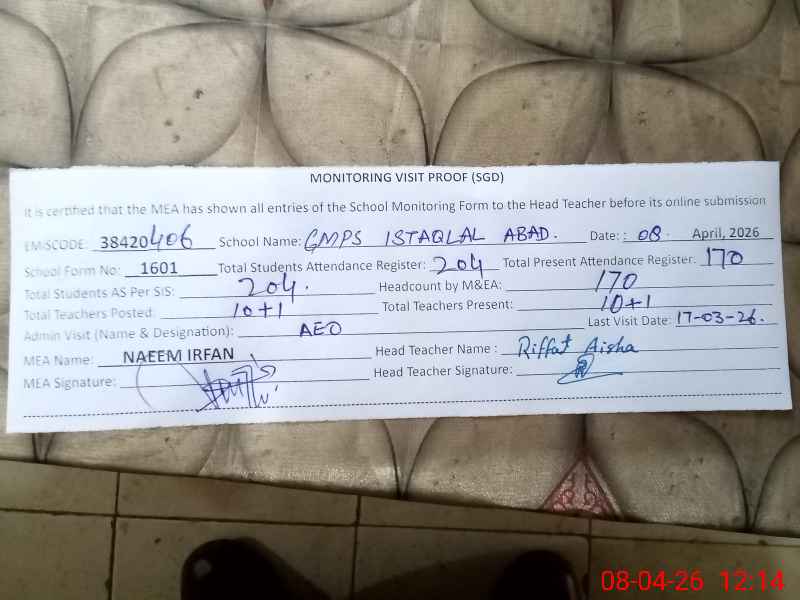 MONITORING VISIT PROOF (SGD)
It is certified that the MEA has shown all entries of the School Monitoring Form to the Head Teacher before its online submission
EMISCODE: 38420406 School Name: GMPS ISTAQLAL ABAD. Date: : 08. April, 2026
School Form No: 1601 Total Students Attendance Register: 204 Total Present Attendance Register: 170
Total Students AS Per SIS: 204. Headcount by M&EA: 170
Total Teachers Posted: 10+1 Total Teachers Present: 10+1
Admin Visit (Name & Designation): AEO Last Visit Date: 17-03-26.
MEA Name: NAEEM IRFAN Head Teacher Name : Riffat Aisha
MEA Signature: Head Teacher Signature:
08-04-26 12:14